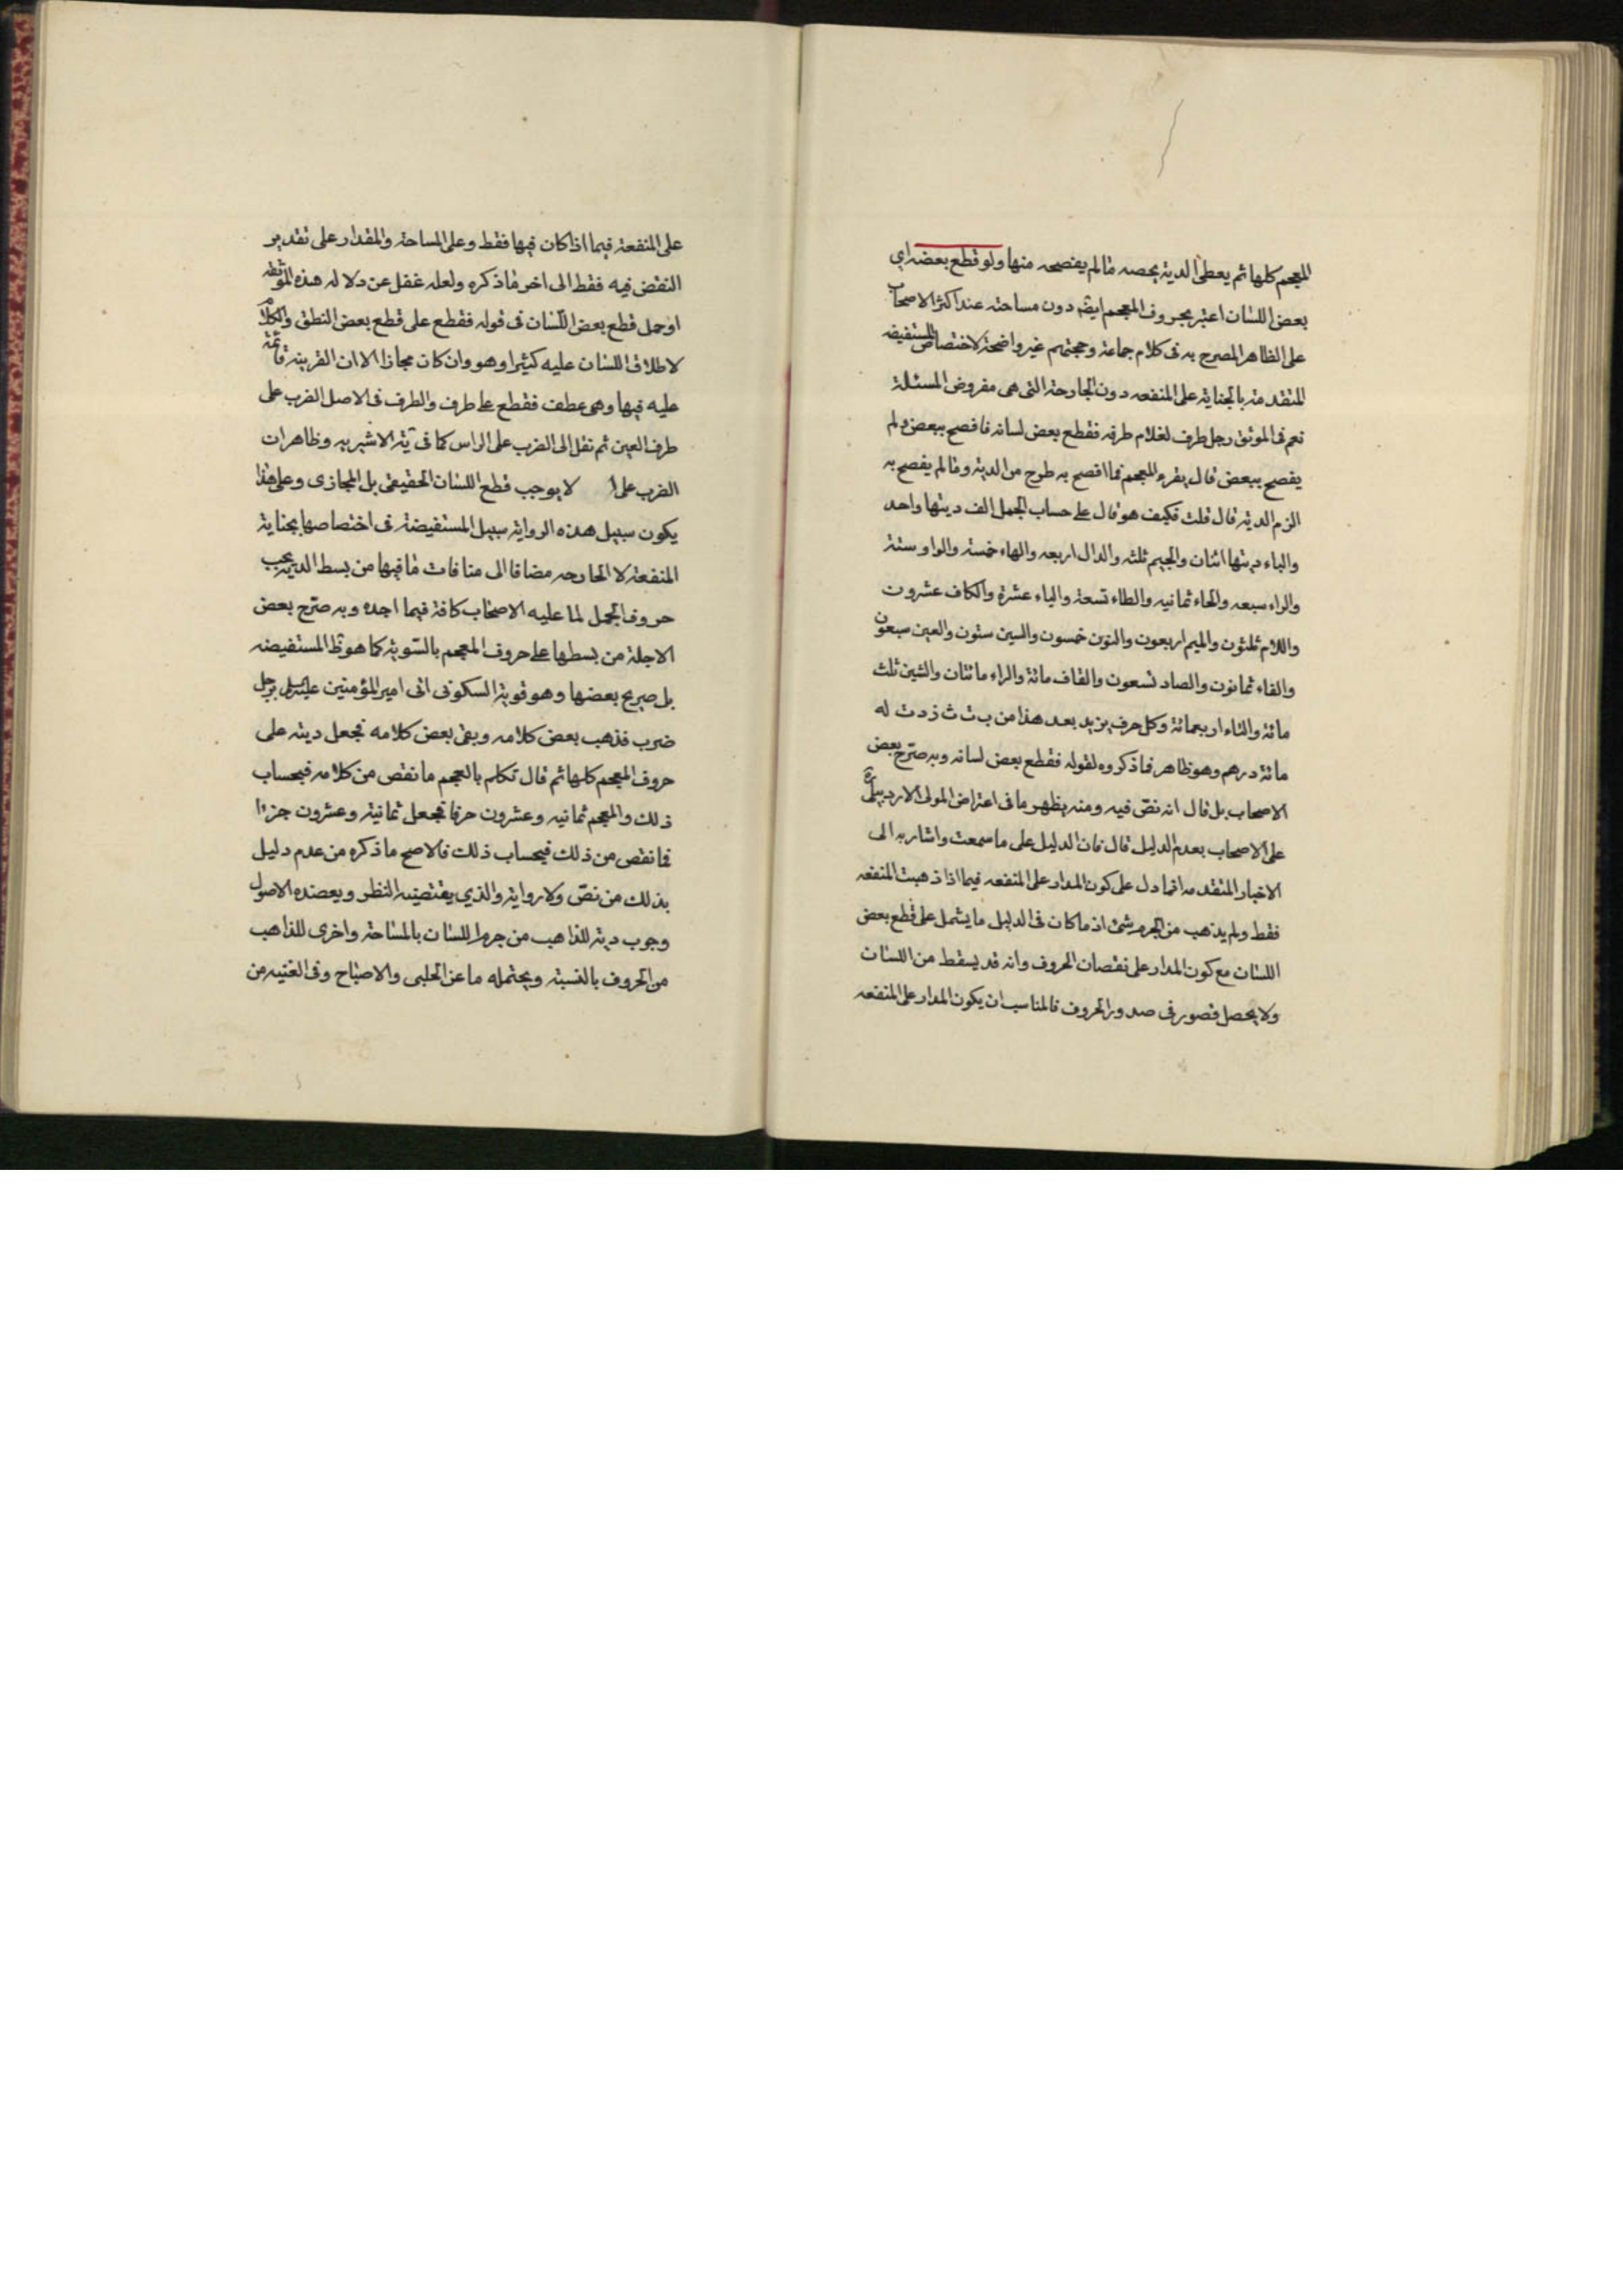 المعجم كلها ثم يعطى الدية بحصه ما لم يفصحه منها ولو قطع بعضه اي
بعض اللسان اعتبر بحروف المعجم ايضه دون مساحته عند اكثر الاصحاب
على الظاهر المصرح به فى كلام جماعة وحجتهم غير واضحة لاختصاص المستفيضه
المتقدمة بالجناية على المنفعه دون الجارحة التى هى مفروض المسئلة
نعم فى الموثق رجل طرف لغلام طرفه فقطع بعض لسانه فافصح ببعض ولم
يفصح ببعض قال يقرء المعجم فما افصح به طرح من الدية وما لم يفصح به
الزم الدية قال قلت فكيف هو قال على حساب الجمل الف ديتها واحد
والباء ديتها اثنان والجيم ثلثه والدال اربعه والهاء خمسة والواو ستة
والزاء سبعه والحاء ثمانيه والطاء تسعة والياء عشرة والكاف عشرون
واللام ثلثون والميم اربعون والنون خمسون والسين ستون والعين سبعون
والفاء ثمانون والصاد تسعون والقاف مائة والراء مائتان والشين ثلث
مائة والتاء اربعمائة وكل حرف يزيد بعد هذا من ب ت ث زدت له
مائة درهم وهو ظاهر فماذكروه لقوله فقطع بعض لسانه وبه صرّح بعض
الاصحاب بل قال انه نصّ فيه ومنه يظهر ما فى اعتراض المولى الاردبيلى ره
على الاصحاب بعدم الدليل قال فان الدليل على ما سمعت واشار به الى
الاخبار المتقدمه انما دل على كون المدار على المنفعه فيما اذا ذهبت المنفعه
فقط ولم يذهب من الجرم شئ اذ ما كان فى الدليل ما يشمل على قطع بعض
اللسان مع كون المدار على نقصان الحروف وانه قد يسقط من اللسان
ولا يحصل قصور فى صدور الحروف فالمناسب ان يكون المدار على المنفعه
على المنفعة فيما اذا كان فيها فقط وعلى المساحة والمقدار على تقدير
النقض فيه فقط الى اخر ماذكره ولعله غفل عن دلاله هذه الموثقه
او حمل قطع بعض اللسان فى قوله فقطع على قطع بعض النطق والكلام
لاطلاق اللسان عليه كثيرا وهو وان كان مجازا الا ان القرينة قائمة
عليه فيها وهى عطف فقطع على طرف والطرف فى الاصل الضرب على
طرف العين ثم نقل الى الضرب على الراس كما فى يّة الاشيريه وظاهر ان
الضرب على لا يوجب قطع اللسان الحقيقى بل المجازى وعلى هذا
يكون سبيل هذه الرواية سبيل المستفيضة فى اختصاصها بجناية
المنفعة لا الحارحه مضافا الى منافات مافيها من بسط الدية بحب
حروف الجمل لما عليه الاصحاب كافة فيما اجده وبه صرّح بعض
الاجلة من بسطها على حروف المعجم بالسّوية كما هو ظ المستفيضه
بل صريح بعضها وهو قوية السكونى اتى امير المؤمنين عليه السلم برجل
ضرب فذهب بعض كلامه وبقى بعض كلامه فجعل ديته على
حروف المعجم كلها ثم قال تكلم بالمعجم ما نقص من كلامه فبحساب
ذلك والمعجم ثمانيه وعشرون حرفا فجعل ثمانية وعشرون جزءا
فما نقص من ذلك فبحساب ذلك فالاصح ماذكره من عدم دليل
بذلك من نصّ ولا رواية والذي يقتضيه النظر ويعضده الاصول
وجوب دية للذاهب من جرم اللسان بالمساحة واخرى للذاهب
من الحروف بالنسبة ويحتمله ما عن الحلبى والاصباح وفى الغنيه من